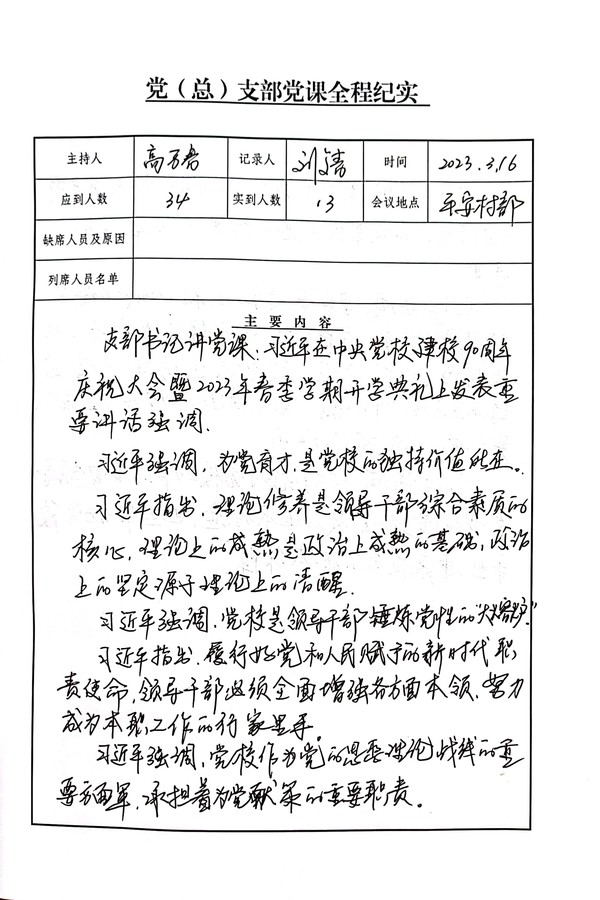 党（总）支部党课全程纪实
主持人 高万君 记录人 刘靖 时间 2023.3.16
应到人数 34 实到人数 13 会议地点 平安村部
缺席人员及原因
列席人员名单
主要内容
支部书记讲党课：习近平在中央党校建校90周年
庆祝大会暨2023年春季学期开学典礼上发表重
要讲话强调.
习近平强调，为党育才，是党校的独特价值所在。
习近平指出，理论修养是领导干部综合素质的
核心，理论上的成熟是政治上成熟的基础，政治
上的坚定源于理论上的清醒.
习近平强调，党校是领导干部锤炼党性的“大熔炉”
习近平指出，履行好党和人民赋予的新时代职
责使命，领导干部必须全面增强各方面本领，努力
成为本职工作的行家里手.
习近平强调，党校作为党的思想理论战线的重
要方面军，承担着为党献策的重要职责。